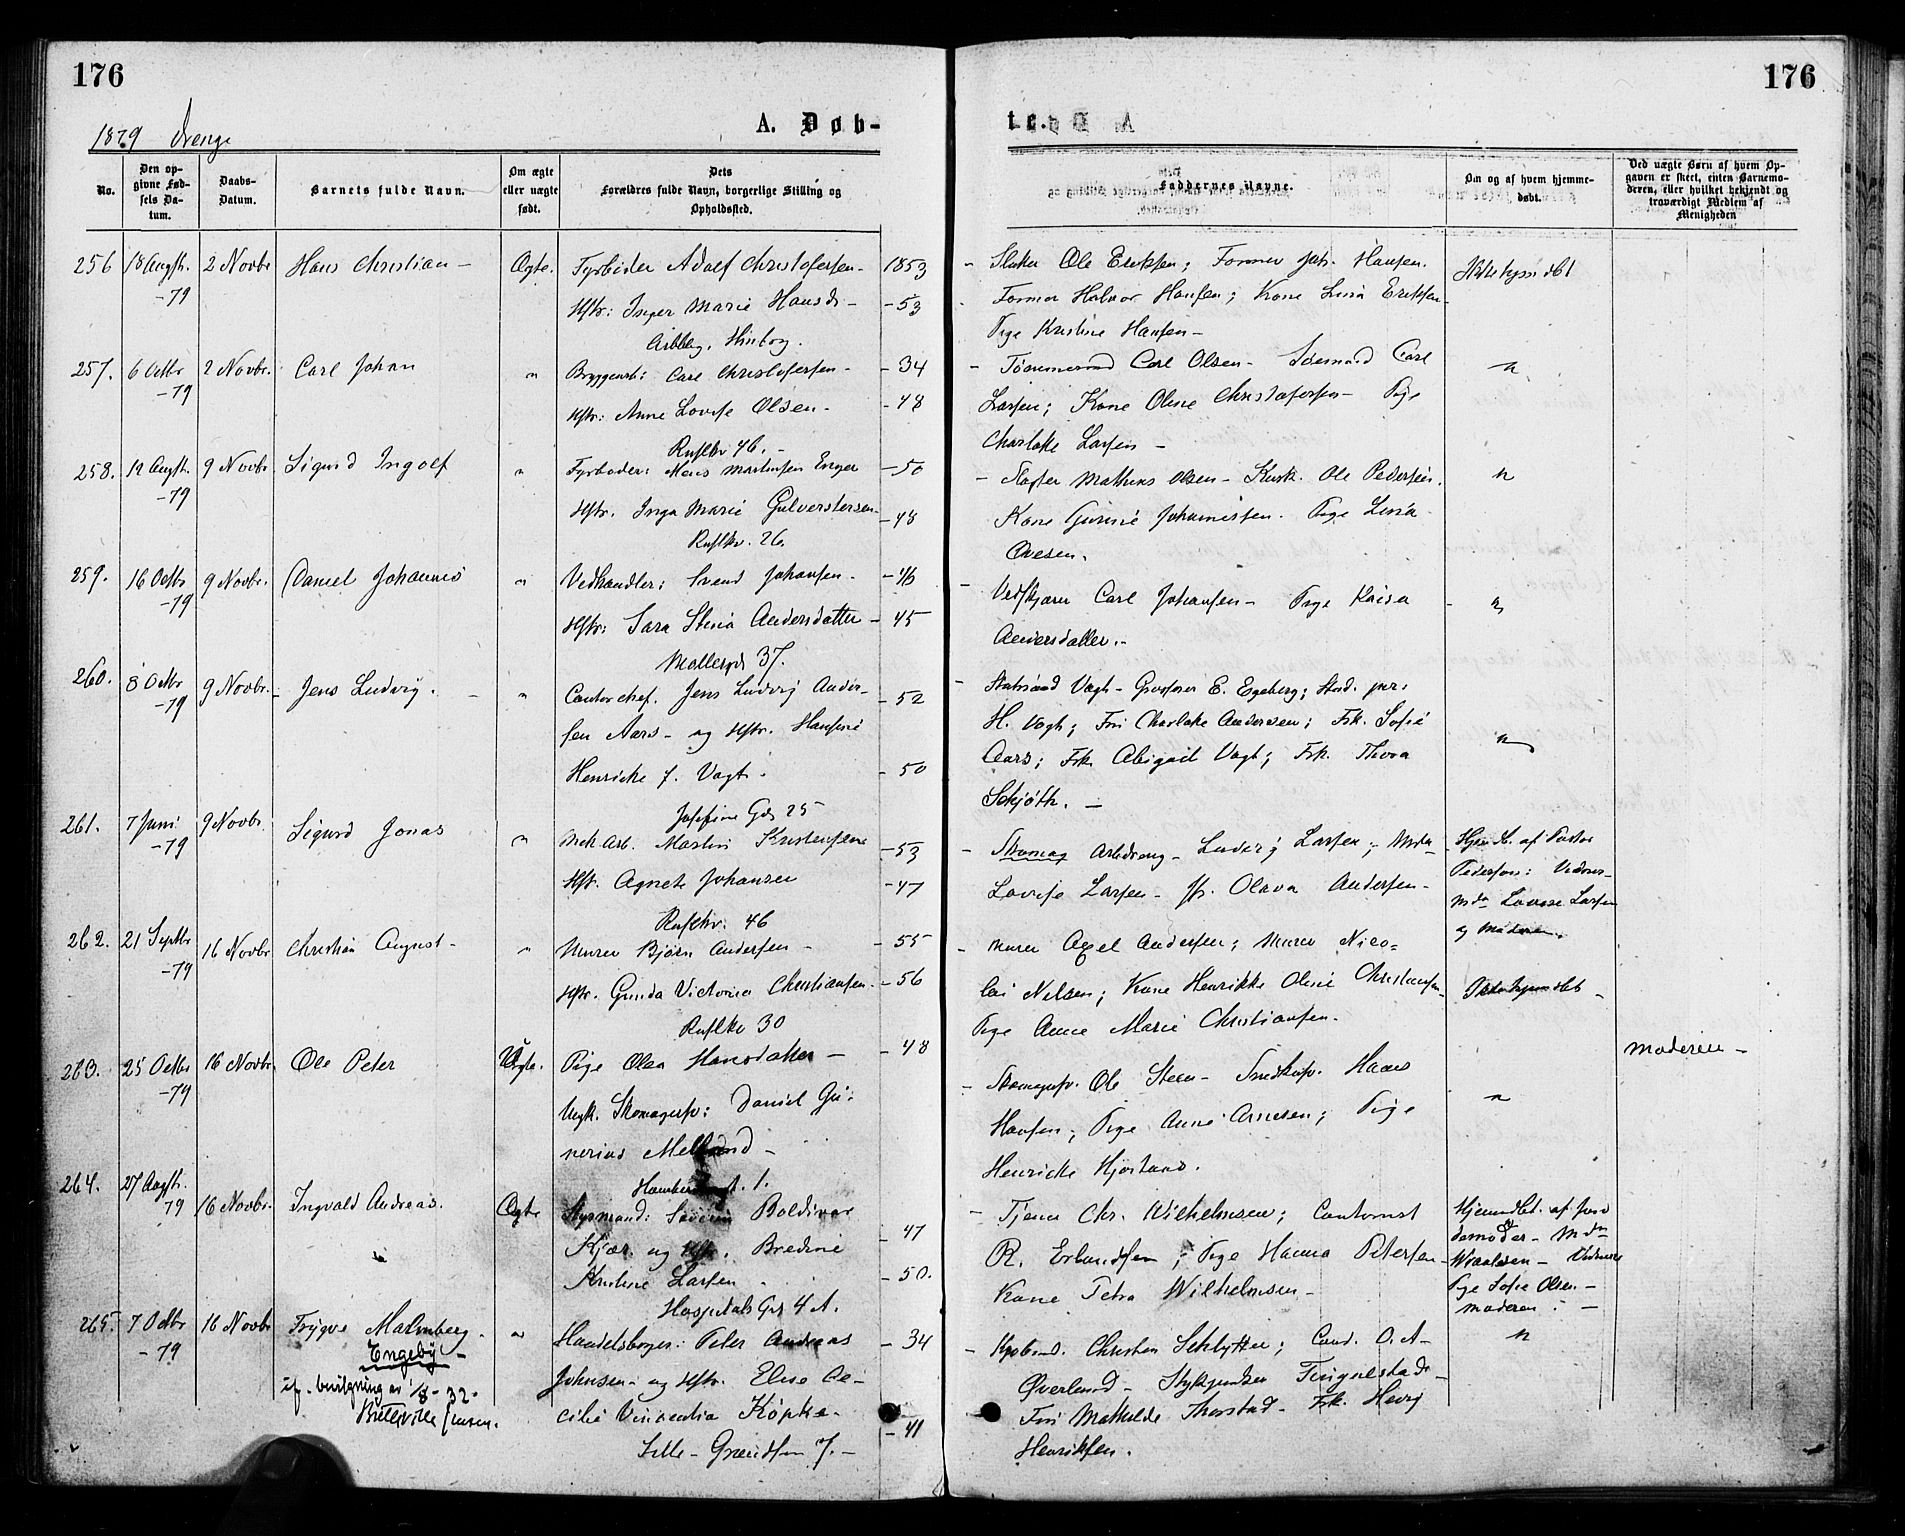 176
176
1879 Drenge
A. Døb-
te.
No.
Den op-
givne Fød-
sels Da-
tum.
Daabs-
Datum.
Barnets fulde Navn.
Om ægte
eller uægte
født.
Dets
Forældres fulde Navn, borgerlige Stilling og
Opholdssted.
Faddernes Navne.
Om og af hvem hjemme-
døbt.
Ved uægte Børn af hvem Op-
gaven er skeet, enten Barnemo-
deren, eller hvilket bekjendt og
troværdigt Medlem af
Menigheden
256 18 Augst. 2 Novbr Hans Christian - Ægte. Fyrbøder Adolf Christofersen - 1853
-79 Hstr: Inger Marie Hansd. - - 53
- Ole Eriksen; Former Joh. Hansen.
Former Halvor Hansen; Kone Lina Eriksen -
Pige Kristine Hansen -
Ikke hjemdøbt
257. 6 Octbr 2 Novbr. Carl Johan " Bryggearb: Carl Christofersen - - 34
-79 Hstr: Anne Lovise Olsen - - 48
Rusløkv 46. -
- Tømmermand Carl Olsen - Sømand Carl
Larsen; Kone Oline Christofersen - Pige
Charlotte Larsen -
"
258. 12 Augst. 9 Novbr Sigurd Ingolf " Fyrbøder: Hans Martinsen Enger - 50
-79 Hstr. Inga Marie - 48
Rusløkv. 26.
- Mathias Olsen - Kusk. Ole Pedersen.
Kone Johannesen. Pige Lina
Ovesen.
"
259. 16 Octbr 9 Novbr. Daniel Johannes " Vedhandler: Svend Johansen - - 46
-79 Hstr: Sara Stina Andersdatter - 45
Møllergd 37.
- Carl Johansen - Pige Kaisa
Andersdatter. -
"
260. 8 Octbr 9 Novbr. - Jens Ludvig. " Contorchef. Jens Ludvig Ander- - 52
-79 sen Aars - og Hstr. Hansine
Henricke f. Vogt. - 50
Josefine Gd 25
- Statsraad Vogt - Grosserer E. Egeberg; Stud. jur:
H. Vogt; Fru Charlotte Andersen; Frk. Sofie
Aars; Frk Abigail Vogt; Frk. Thora
Schjøth. -
"
261. 7 Juni 9 Novbr Sigurd Jonas " Mek. Arb. Martin Kristensen - 53
-79 Hstr. Agnete Johansen - 47
Rusløkv. 46
- Skomag Arbdreng - Ludvig Larsen; Mda
Lovise Larsen - Jfr. Olava Andersen -
Hjemdbt. af Pastor
Pedersen: Vidner -
Mda Lovise Larsen
og Moderen.
262. 21 Septbr 16 Novbr Christian August - " Murer Bjørn Andersen - - 55
-79 Hstr. Gunda Victoria Christiansen - 56
Rusløkv 30
- Murer Axel Andersen; Murer Nico=
lai Nilsen; Kone Henrikke Oline Christensen -
Pige Anne Marie Christiansen.
Ikke hjemdøbt -
263. 25 Octbr 16 Novbr. Ole Peter Uægte. Pige Olea Hansdatter - - 48
-79 Ungk. Skomagersv: Daniel Gu-
nerius
- Skomagersv. Ole Steen - Snedksv. Hans
Hansen; Pige Anne Arnesen; Pige
Henricke
"
Moderen -
264. 27 Augst. 16 Novbr. Ingvald Andreas. Ægte Styrmand: Severin Boldivar - 47
79 Kjær. og Hstr. Bredine
Kristine Larsen - 50.
Hospitals Gd 4 A.
- Tjener Chr. Wilhelmsen; Contorist
R. Erlandsen; Pige Hanna Petersen -
Kone Petra Wilhelmsen -
Hjemdbt. af Jord
demoder - Mda
- Vidner
Pige Sofie Olsen -
Moderen: -
265. 7 Octbr 16 Novbr Trygve Malmberg. " Handelsborger: Peter Andreas - 34
-79 Engeby -
if. bevilgning av 1/8 - 32 -
Johnsen - og Hstr. Elise Ce-
cilie Vincentia Köpke - - 41
Lille - Grændsen 7. -
- Kjøbmd. Christen Schlytter; Cand. O. A.
Øverland -
Fru Mathilde Thorstad - Frk. Henry
Henriksen.
"